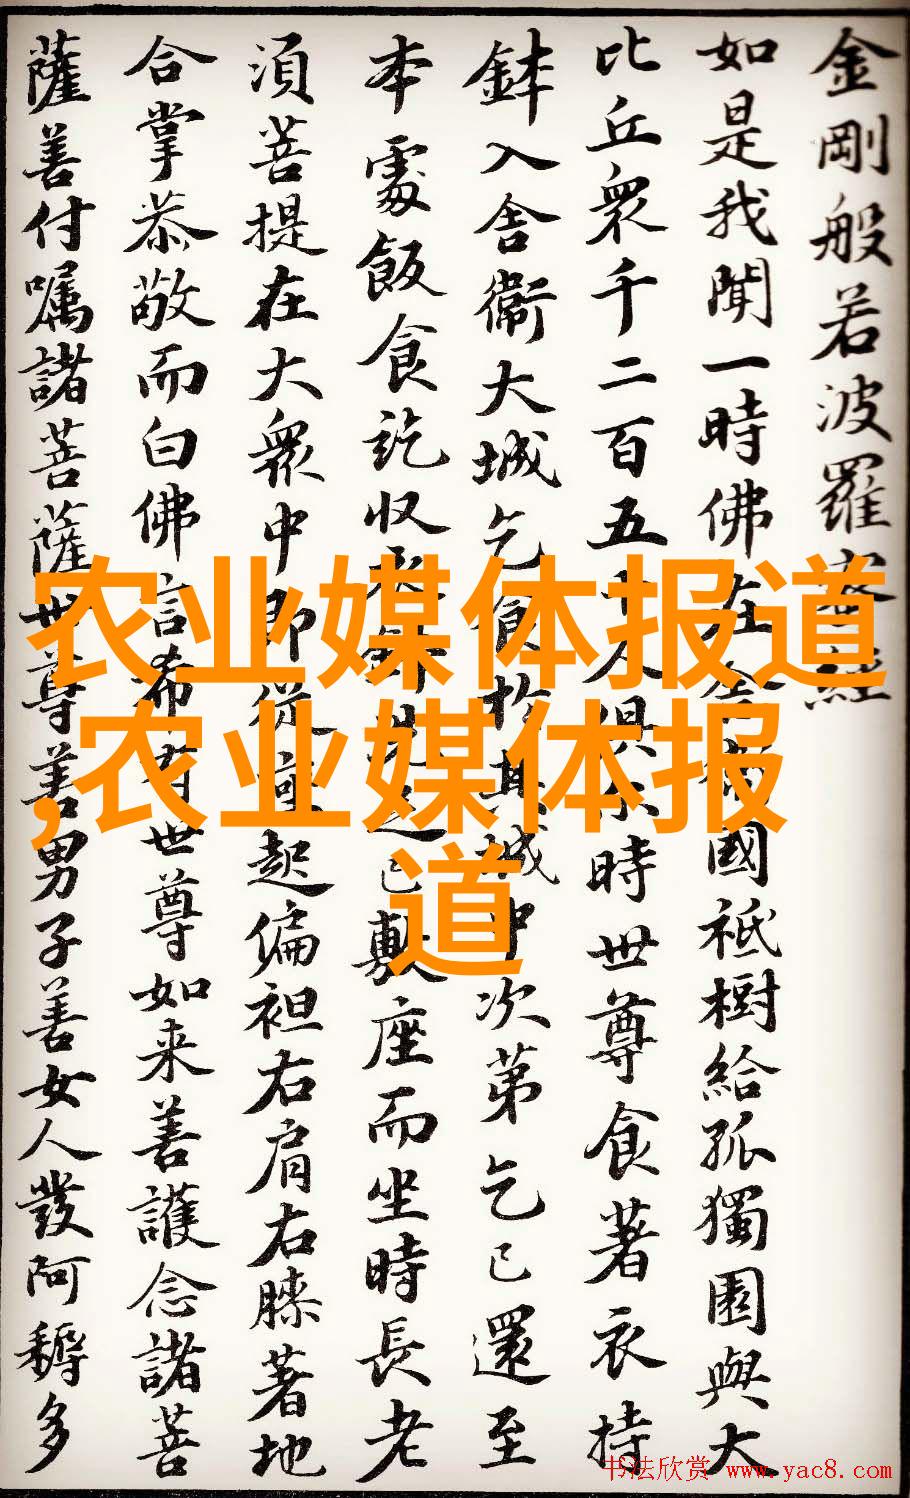 金剛般若波羅蜜經
如是我聞一時佛在舍衛國祗樹給孤獨園與大
比丘衆千二百五十人俱尒時世尊食著衣持
鉢入舍衞大城乞食於其城中次第乞已還至
本處飯食訖收衣鉢洗足已敷座而坐時長老
湏菩提在大衆中即從座起偏袒右肩右膝著地
合掌恭敬而白佛言希有世尊如来善護念諸菩
薩善付嘱諸菩薩世尊善男子善女人發阿耨多
农业媒体报道
,农业媒体报
道
书法欣赏 www.yac8.com